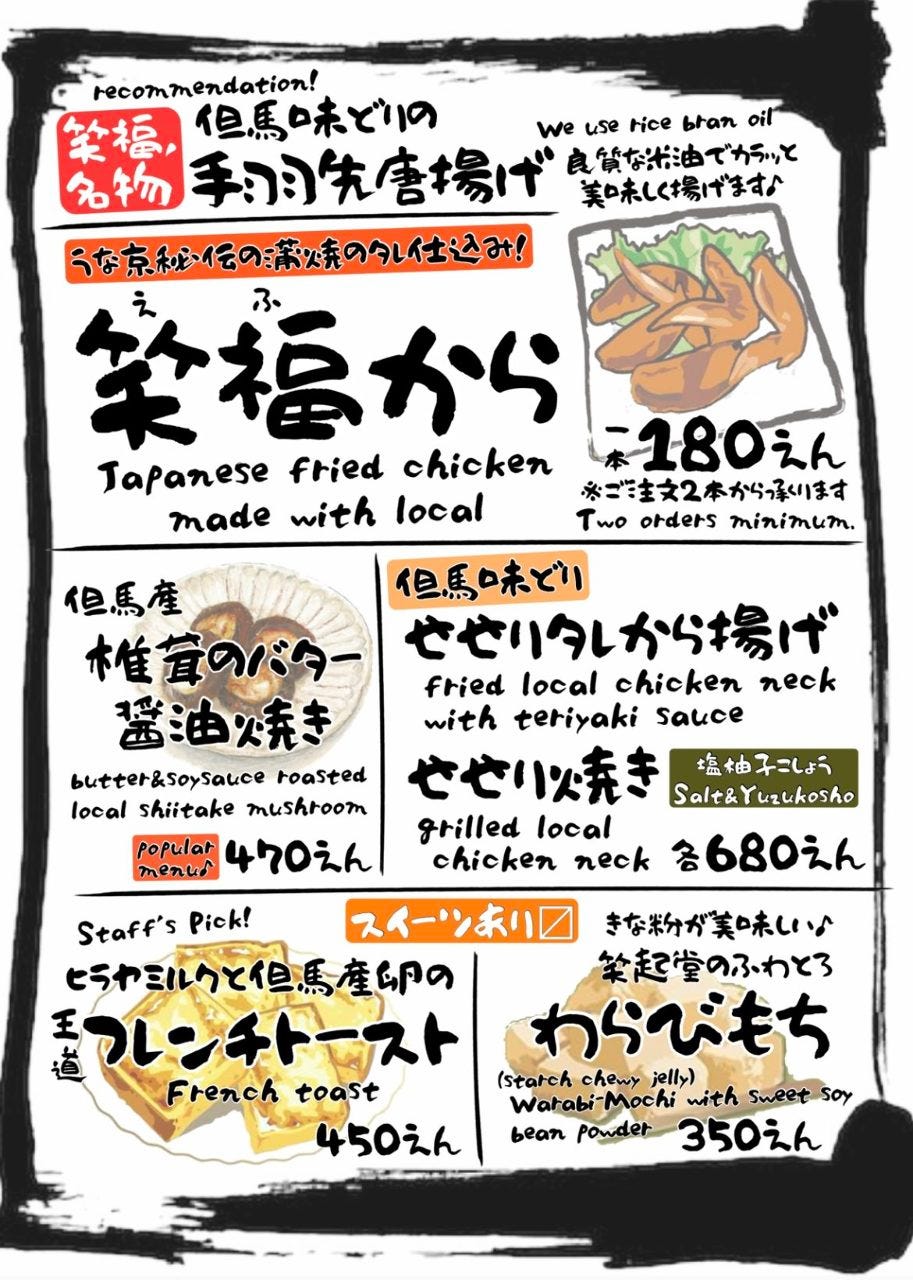 recommendation!
笑福名物
但馬味どりの
手羽先唐揚げ
We use rice bran oil
良質な米油でカラッと
美味しく揚げます♪
うな京秘伝の蒲焼のタレ仕込み!
えふ
笑福から
Japanese fried chicken
made with local
一本180えん
※ご注文2本から承ります
Two orders minimum.
但馬産
椎茸のバター
醤油焼き
butter&soysauce roasted
local shiitake mushroom
popular
menu♪
470えん
但馬味どり
せせりタレから揚げ
fried local chicken neck
with teriyaki sauce
せせり焼き
塩柚子こしょう
Salt&Yuzukosho
grilled local
chicken neck
各680えん
Staff's Pick!
スイーツあり〼
ヒラヤミルクと但馬産卵の
王道
フレンチトースト
French toast
450えん
きな粉が美味しい♪
笑起堂のふわとろ
わらびもち
(starch chewy jelly)
Warabi-Mochi with sweet soy
bean powder
350えん